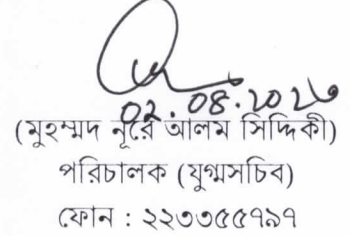 02.08.2026
(মুহম্মদ নূরে আলম সিদ্দিকী)
পরিচালক (যুগ্মসচিব)
ফোন : ২২৩৩৫৫৭৯৭